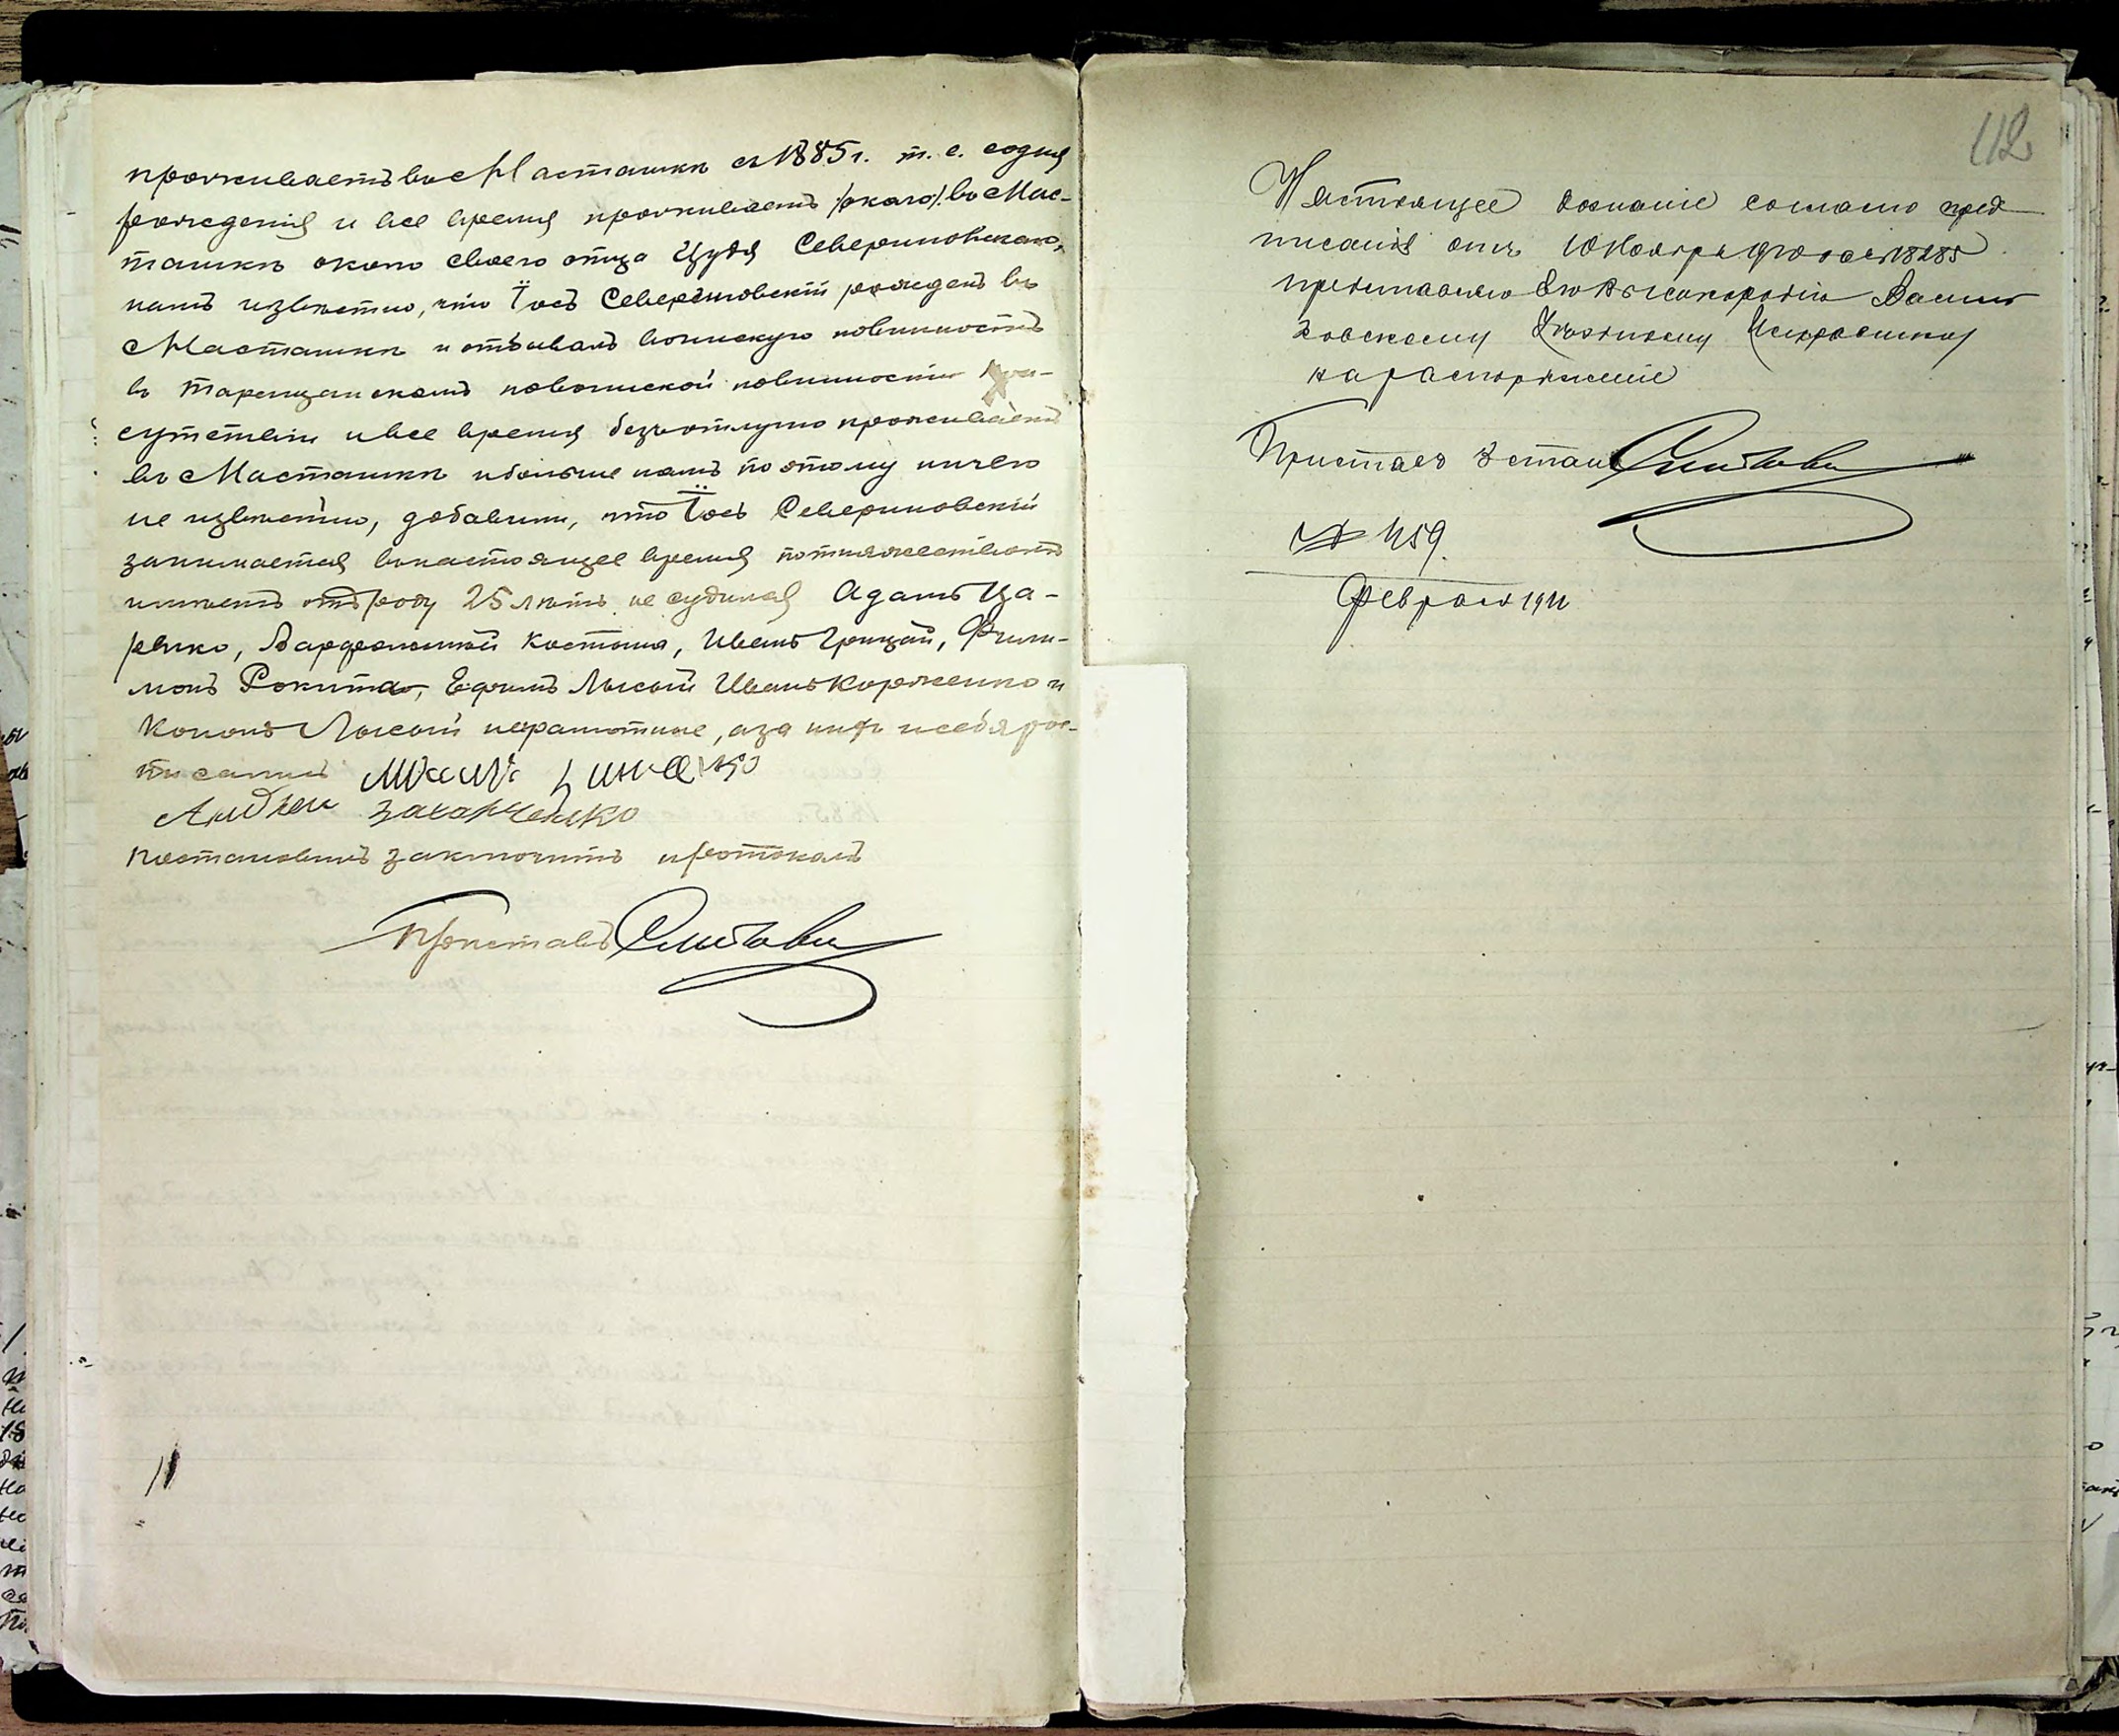 проживаетъ въ Масташкѣ съ 1885 г. т. е. со дня
рожденія и все время проживаетъ /около/ въ Мас-
ташкѣ около своего отца Цудя Севериновскаго,
намъ извѣстно, что Іосъ Севериновскій рожденъ въ
Масташкѣ и отбывалъ воинскую повинность
въ Таращанскомъ по воинской повинности При-
сутствіи и все время безъотлучно проживаетъ
въ Масташкѣ и больше намъ по этому ничего
не извѣстно, добавили, что Іосъ Севериновскій
занимается въ настоящее время
имѣетъ отъ роду 25 лѣтъ не судился Адамъ Ца-
ренко, Варфоломей Костюша, Иванъ Грицай, Фили-
монъ Рокита, Ефимъ Лысый Иванъ Корженко и
Кононъ Лысый неграмотные, а за нихъ и себя рос-
писались
Андрей Захарченко
Постановилъ заключить протоколъ
Приставъ
112
Настоящее дознаніе согласно пред-
писанія отъ 10 Ноября 18285
представляю Его Высокородію Василь
ковскому Уѣздному Исправнику
на распоряженіе
Приставъ 3 стана
№ 459.
Февраля 1911